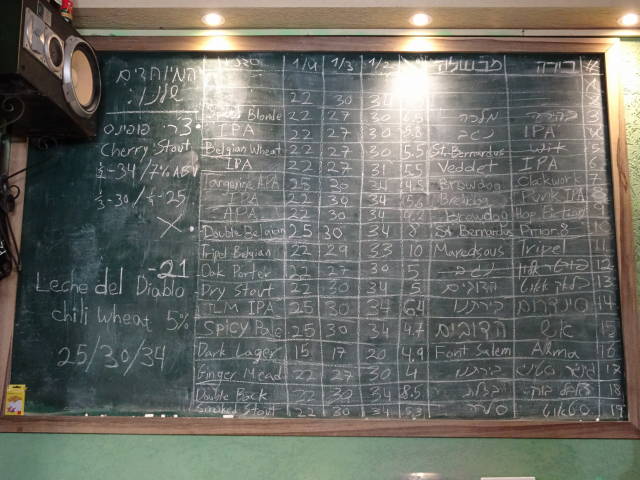 המיוחדים
שלנו:
Cherry Stout
1/2-34 / 7% ABV
1/3-30 / 1/4-25
21-
Leche del Diablo
chili wheat 5%
25/30/34
1/4 1/3 1/2 מבשלה בירה #
22 30 34
Blonde 22 27 30 6.5 מלכה 3
IPA 22 27 30 5.8 נגב IPA 4
Belgian Wheat 22 27 30 5.5 St. Bernardus wit 5
IPA 22 27 31 5.5 Vedett IPA 6
Tangerine APA 25 30 34 4.5 Brewdog Clockwork 7
IPA 22 30 34 5.6 Brewdog Punk IPA 8
APA 22 30 34 Brewdog Hop Fiction 9
Double Belgian 25 30 34 8 St Bernardus Prior 8 10
Tripel Belgian 22 29 33 10 Maredsous Tripel 11
Oak Porter 22 27 30 5 נגב 12
Dry Stout 22 30 34 5 הדובים 13
ILM IPA 25 30 34 6.4 בירתנו סינדרום 14
Spicy Pale 25 30 34 4.7 הדובים אש 15
Dark Lager 15 17 20 4.9 Font Salem Alhma 16
Ginger Mead 22 27 30 4 בירתנו 17
Double Bock 22 30 34 8.5 18
Smoked Stout 22 30 34 5.3 סטאוט 19